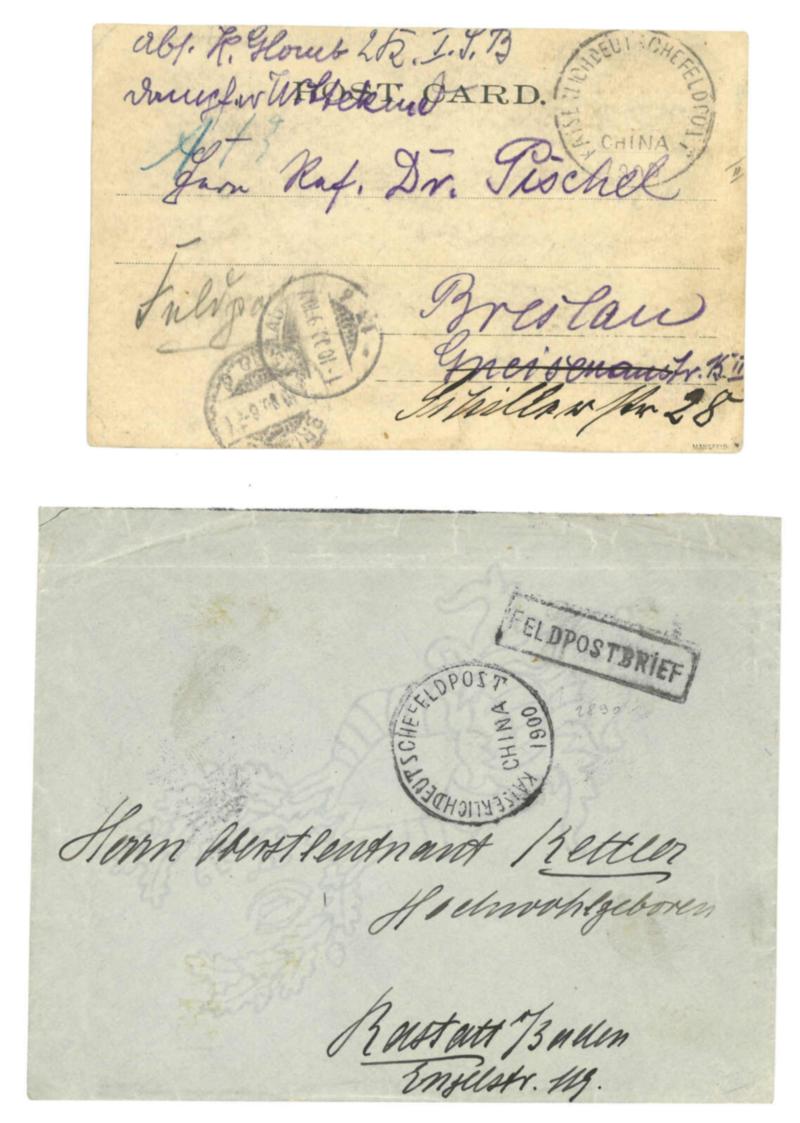 Abs. K. Glomb
Dampfer Wittekind
POST CARD.
KAISERLICHDEUTSCHEFELDPOST
CHINA
Herrn Dr. Pischel
Feldpost
Breslau
Gneisenaustr.
Schillerstr 28
FELDPOSTBRIEF
KAISERLICHDEUTSCHEFELDPOST
CHINA
1900
Herrn Oberstleutnant Kettler
Hochwohlgeboren
Rastatt/Baden
Engelstr. 119.